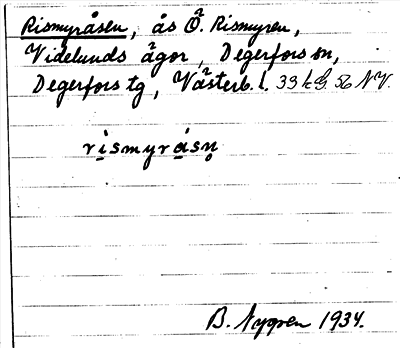 Rismyråsen, ås Ö. Rismyren,
Videlunds ägor, Degerfors sn,
Degerfors tg, Västerb. l. 33 h G 56 NV.
rismyråsn̥
B. Nygren 1934.